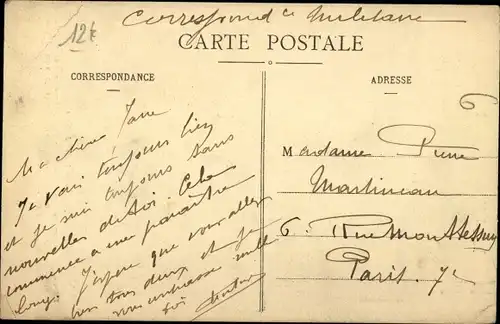 Correspondce Militaire
12€
CARTE POSTALE
CORRESPONDANCE
ADRESSE
Ma chère Jane
Je vais toujours bien
et je suis toujours sans
nouvelles de toi Cela
commence à me paraître
long. J'espère que vous allez
bien tous deux et je
vous embrasse mille
fois
6
Madame Pierre
Martineau
6. Rue Montessuy
Paris. 7e